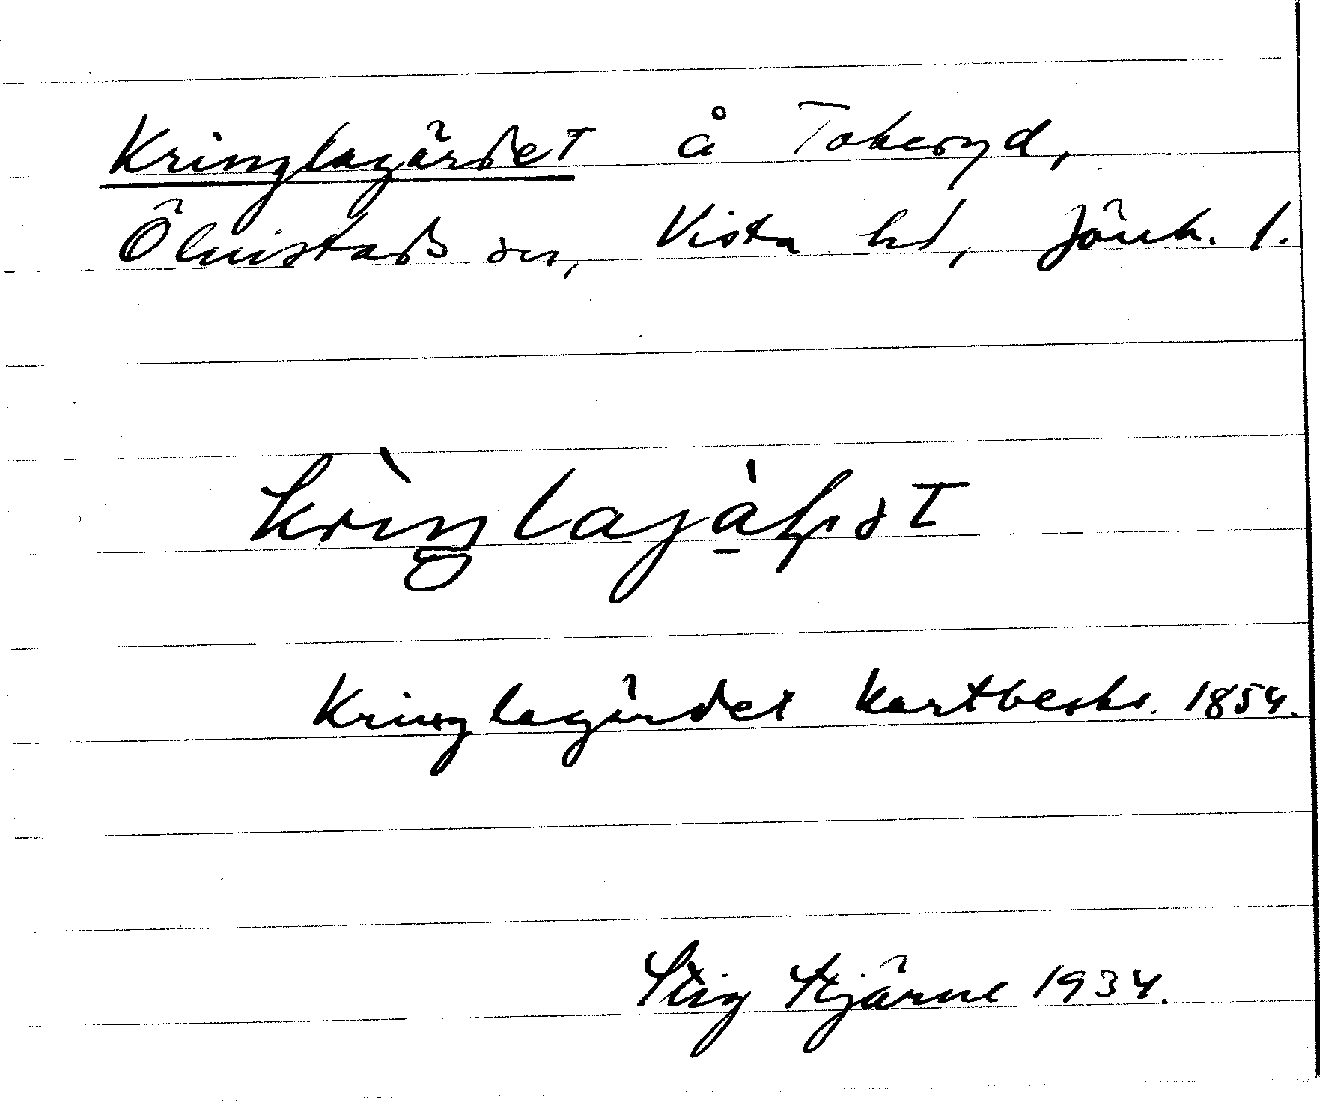 Kringlagärdet å Tokeryd,
Ölmstads sn, Vista hd, Jönk. l.
Kringlagärdet kartbeskr. 1854.
Stig Stjärne 1934.